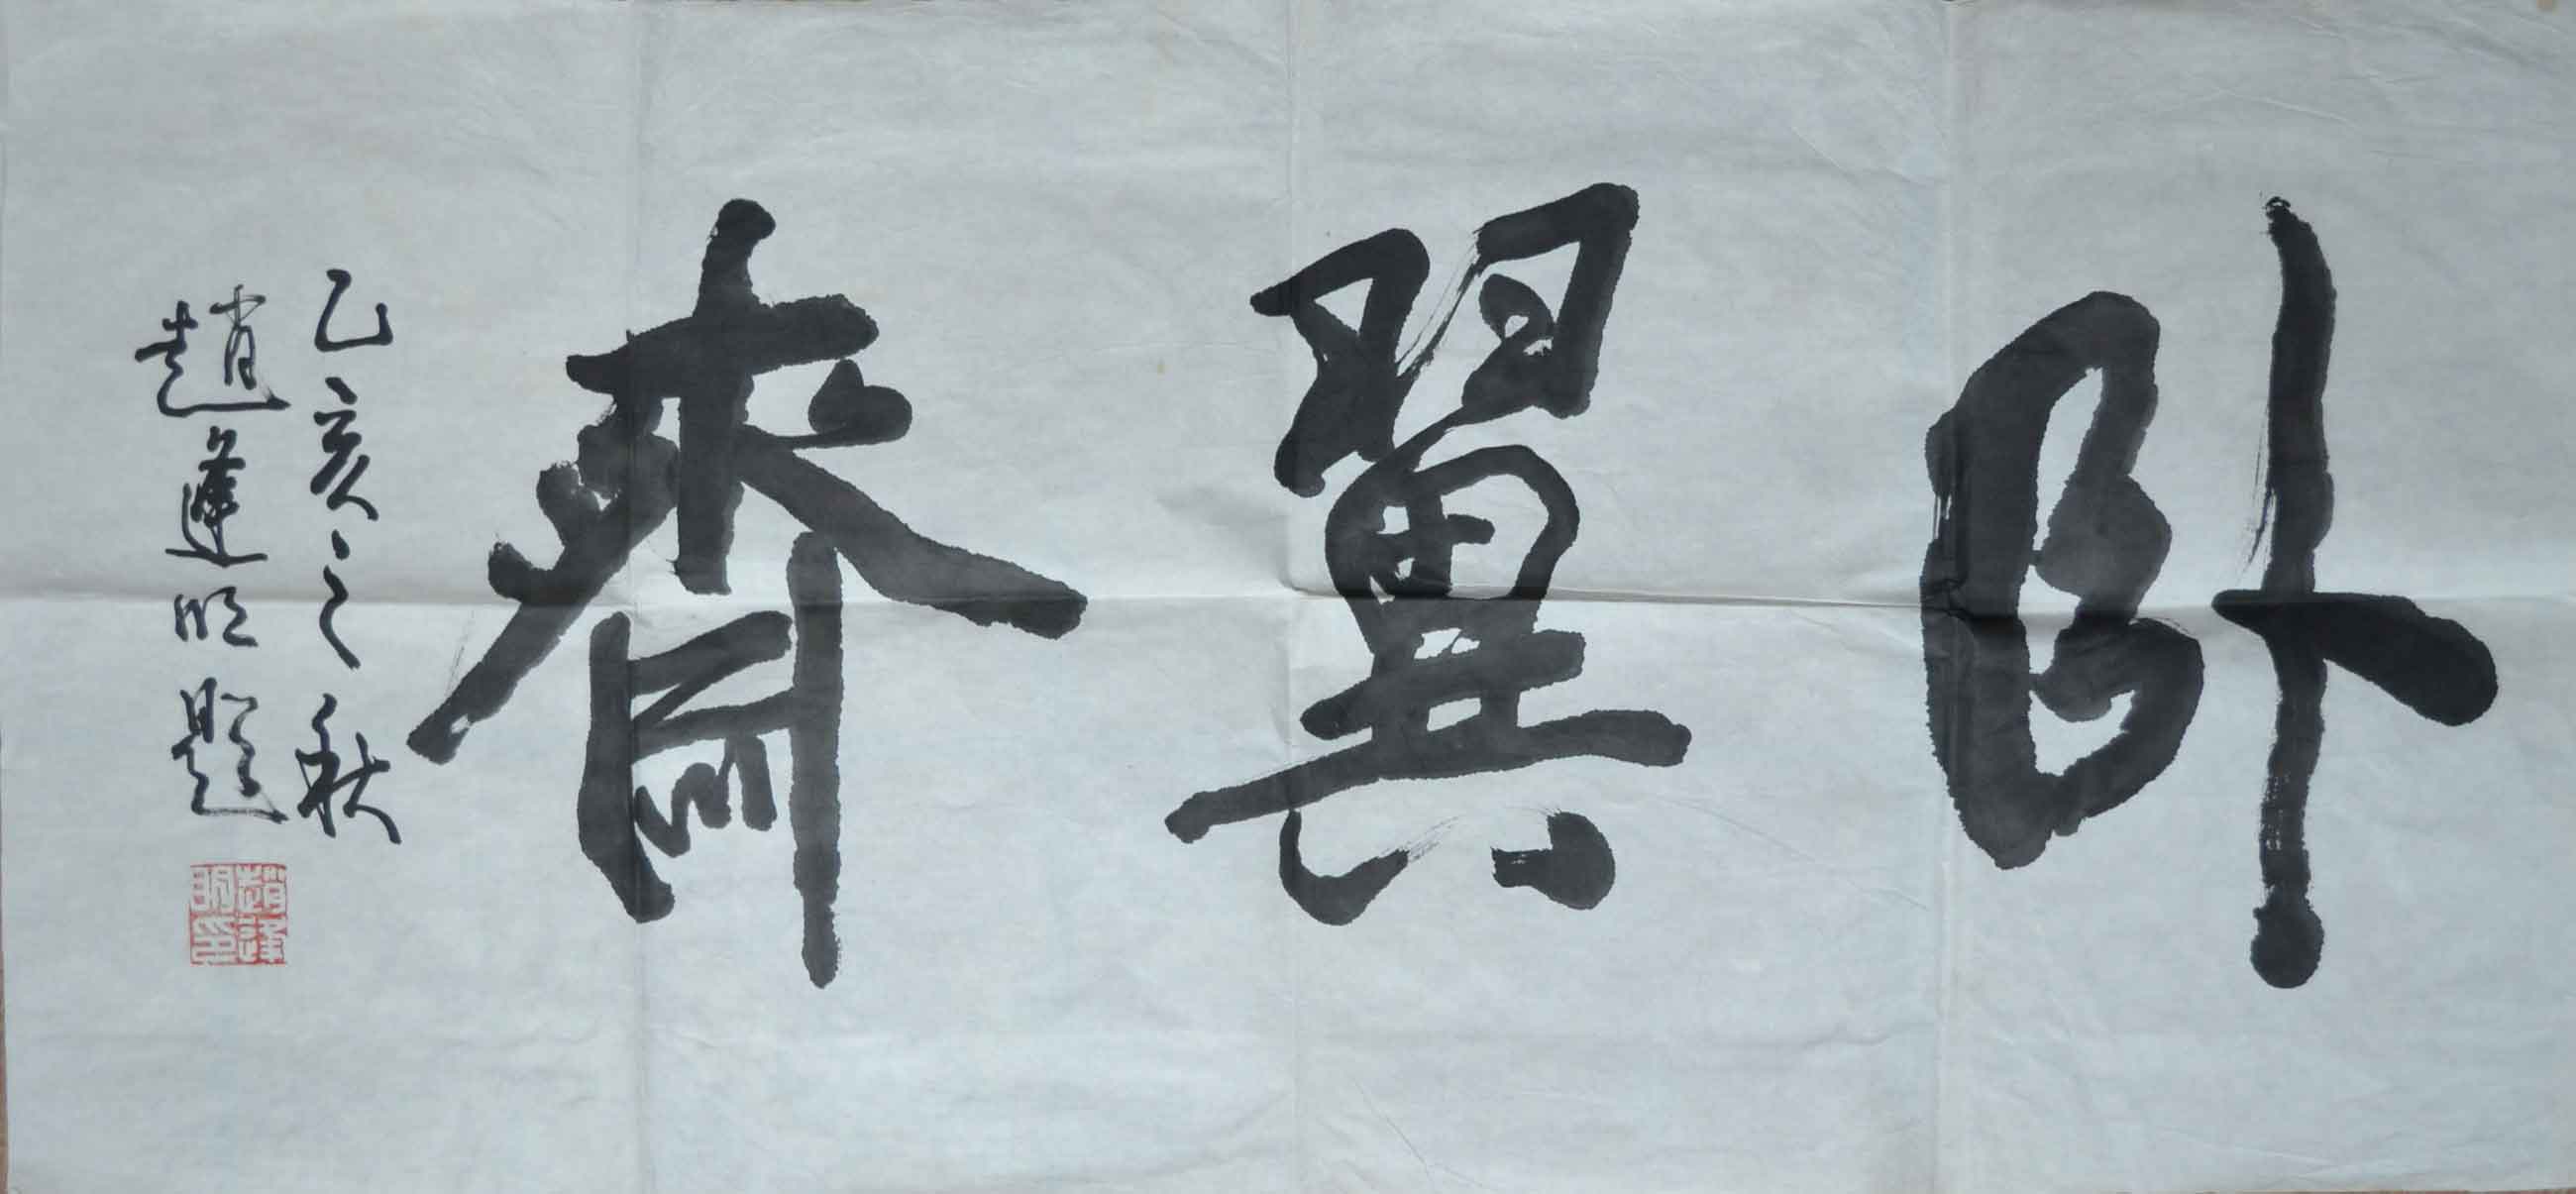 卧翼齋
乙亥之秋
趙逢明題
趙逢明印